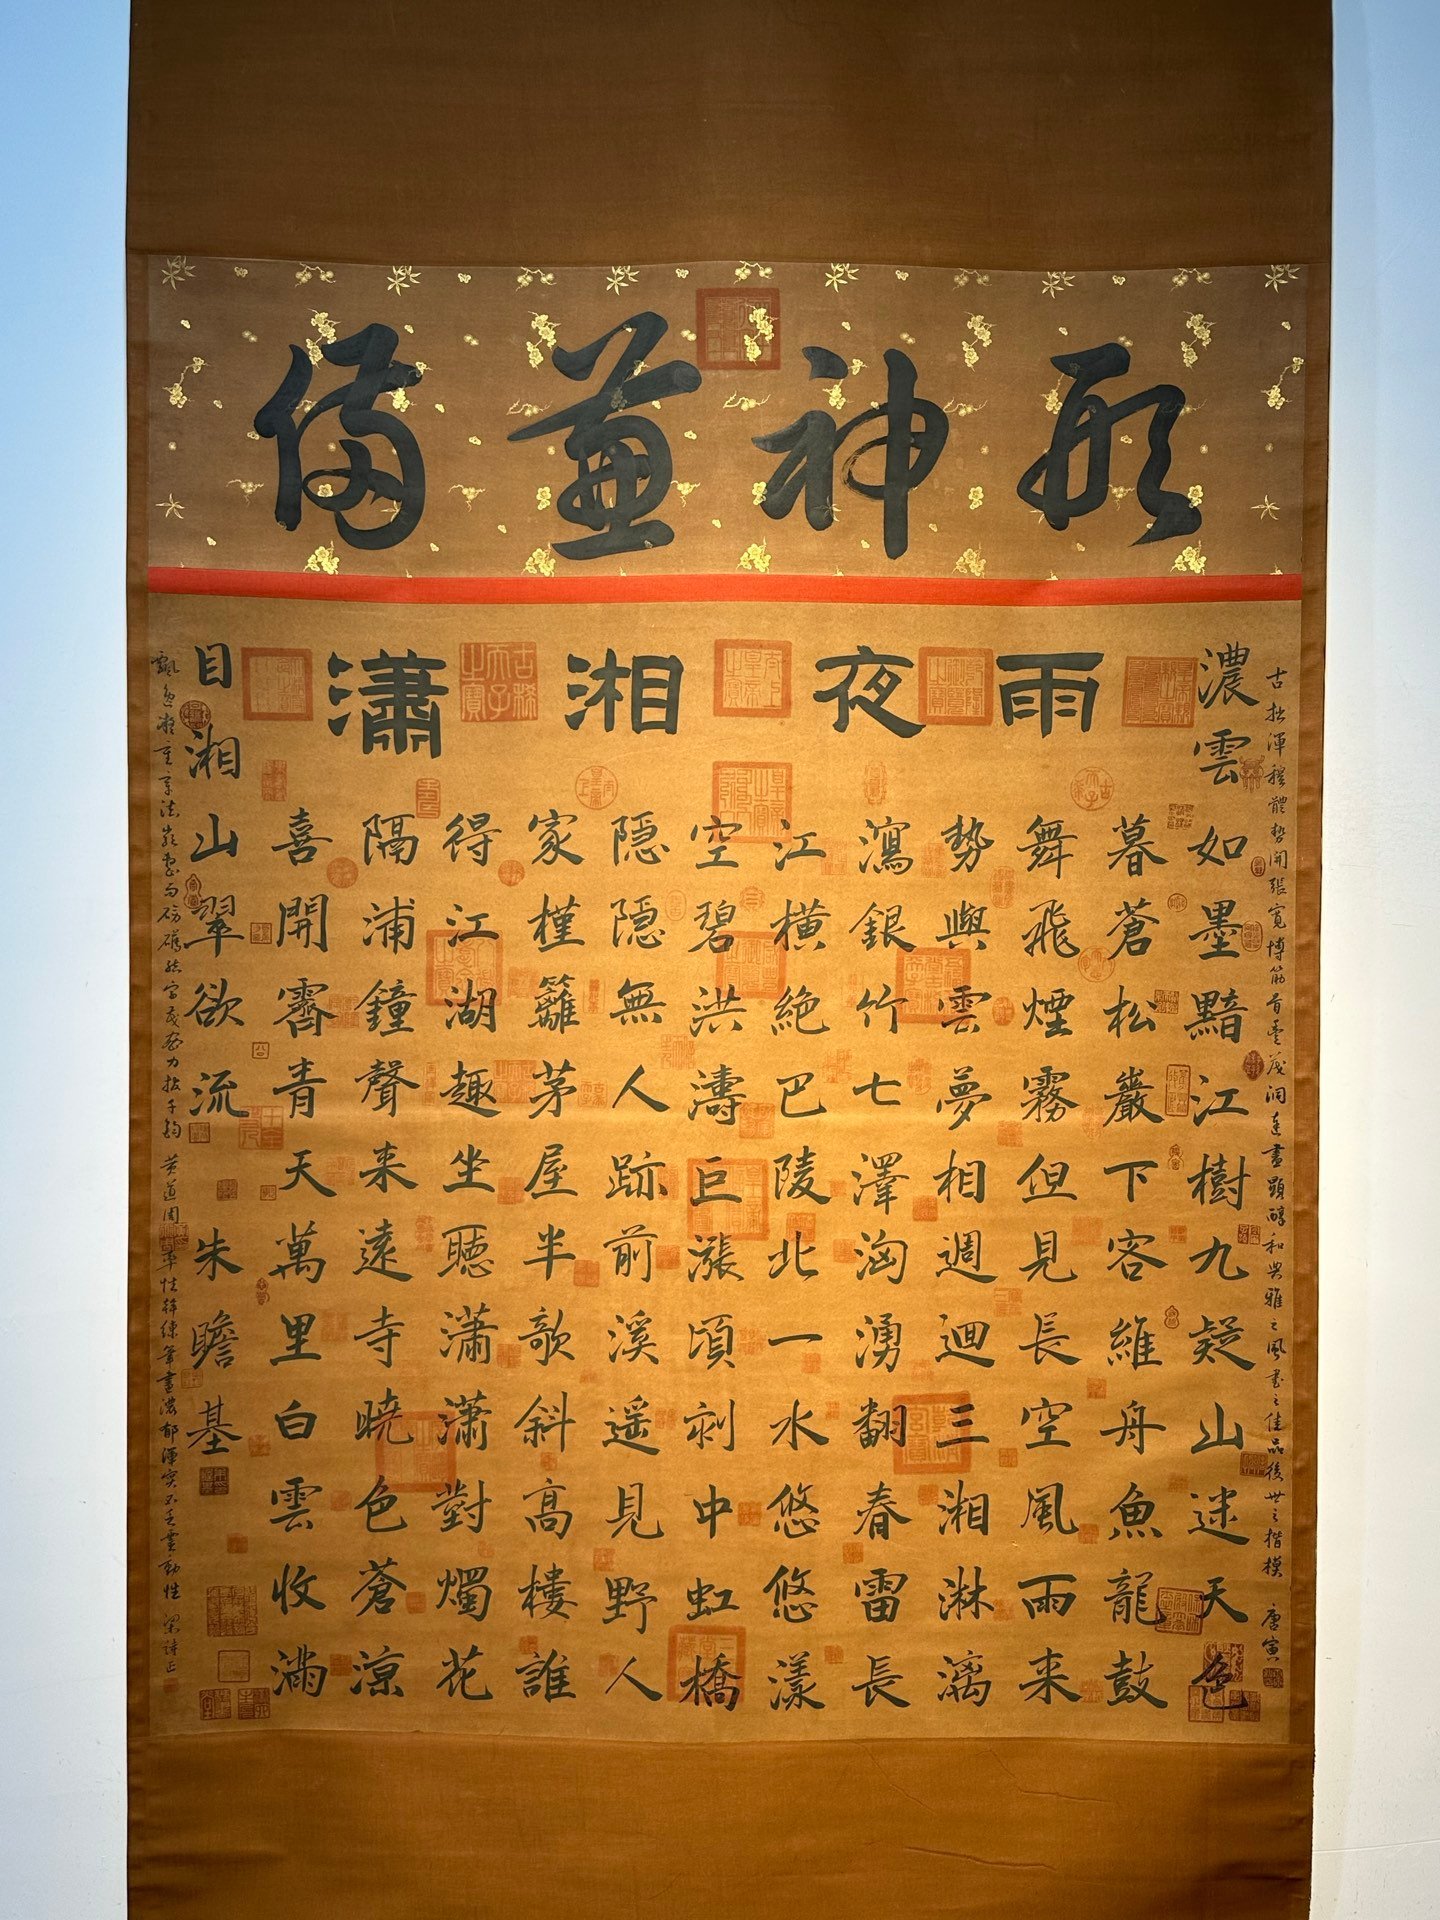 形神兼備
瀟湘夜雨
古拙渾穆體勢開張寬博筋骨豐茂洞達盡顯醇和典雅之風書之佳品後世之楷模 唐寅
濃雲如墨黯江樹九疑山迷天色
暮蒼松巖下客維舟魚龍鼓
舞飛煙霧但見長空風雨来
勢與雲夢相週迴三湘淋漓
瀉銀竹七澤洶湧翻春雷長
江橫絶巴陵北一水悠悠漾
空碧洪濤巨漲頃刻中虹橋
隱隱無人跡前溪遥見野人
家槿籬茅屋半歌斜高樓誰
得江湖趣坐聴瀟瀟對燭花
隔浦鐘聲来遠寺曉色蒼涼
喜開霽青天萬里白雲收滿
目湘山翠欲流 朱瞻基
黄道周
筆畫濃郁渾實不乏靈動性 梁詩正